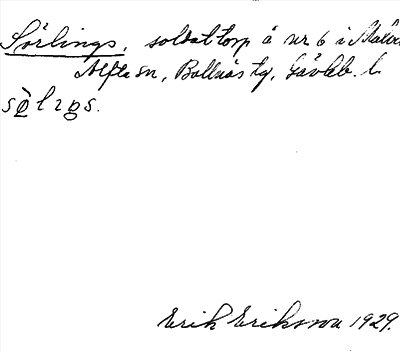 Sörlings, soldattorp å nr 6 i
Alfta sn, Bollnäs tg, Gävleb. l.
Erik Eriksson 1929.